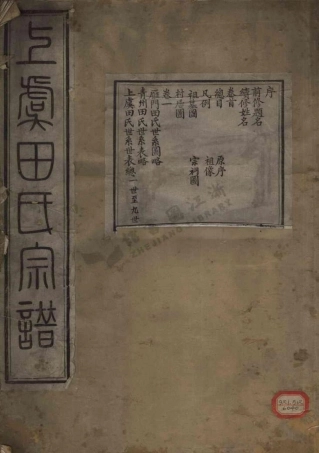 上虞田氏宗譜
序
前修題名
續修姓名
卷首
總目 原序
凡例 祖像
祖墓圖 宦利圖
卷一
雁門田氏世系圖略
青州田氏世系表略
上虞田氏世系世表總一世至九世